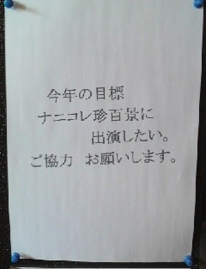 今年の目標
ナニコレ珍百景に
出演したい。
ご協力 お願いします。